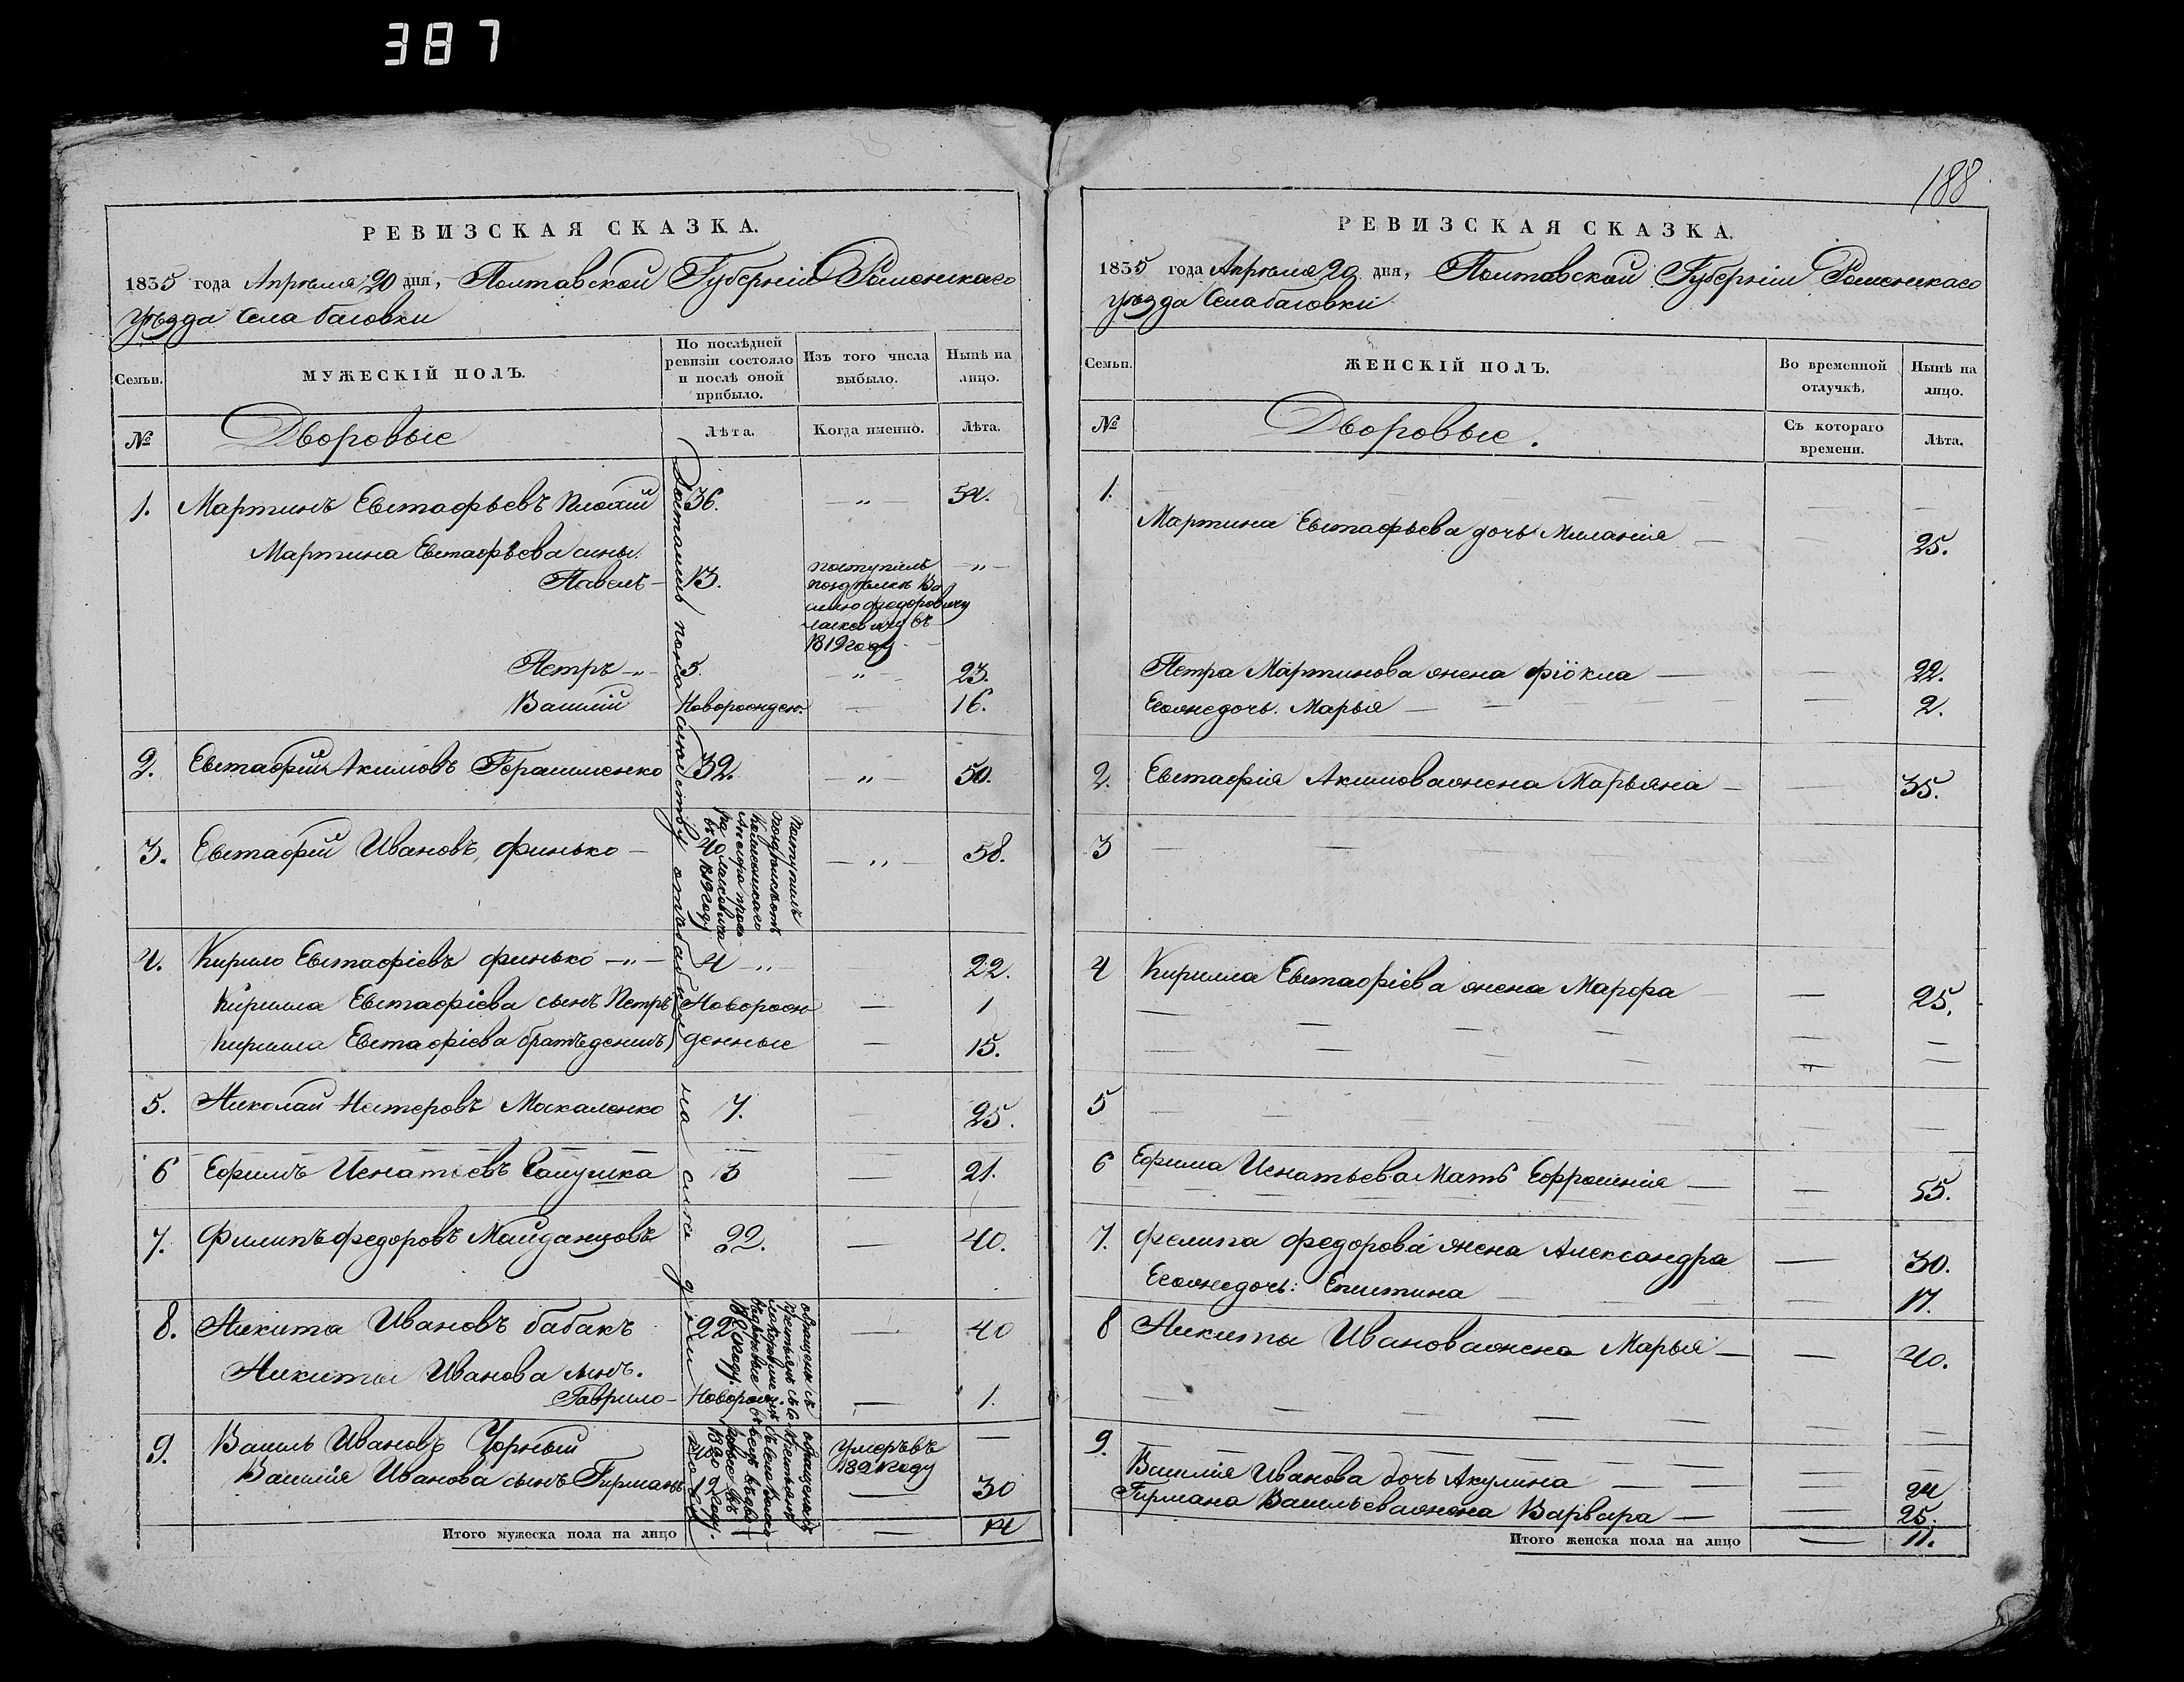 387
188
РЕВИЗСКАЯ СКАЗКА.
1835 года Апреля 20 дня, Полтавской Губерніи Роменскаго
уѣзда Села баговки
Семьи.
МУЖЕСКІЙ ПОЛЪ.
По послѣдней
ревизіи состояло
и послѣ оной
прибыло.
Изъ того числа
выбыло.
Нынѣ на
лицо.
№
Дворовые
Лѣта.
Когда именно.
Лѣта.
1. Мартинъ Евстафьевъ Плохій 36. — „ — 54.
Мартина Евстафьева сины.
Павелъ — 13. поступилъ — „ —
Василію федоровичу
въ
1819 году
Петръ — „ — 5. — „ — 23.
Василій Новорожден. — 16.
2. Евстафій Акимовъ Герасименко 32. — „ — 50.
3. Евстафій Ивановъ финько — 40 — „ — 58.
Поступилъ
въ 1819 году
4. Кирило Евстафіевъ финько — „ — 4 — „ — 22.
Кирилла Евстафіева сынъ Петръ Новорож — 1
Кирилла Евстафіева братъ денисъ денные — 15.
5. Николай Нестеровъ Москаленко 7. 25.
6 Ефимъ Игнатіевъ Галушка 3 — 21.
7. Филипъ федоровъ Майданцовъ 22. — 40.
8. Никита Ивановъ бабакъ 22 — 40
Никиты Иванова сынъ.
Гаврило — Новорож — 1.
9. Василь Ивановъ Чорный Умеръ въ —
Василія Иванова сынъ Гирманъ 12 — 30
Итого мужеска пола на лицо — 14
РЕВИЗСКАЯ СКАЗКА.
1835 года Апреля 20 дня, Полтавской Губерніи Роменскаго
уѣзда Села баговки
Семьи.
ЖЕНСКІЙ ПОЛЪ.
Во временной
отлучкѣ.
Нынѣ на
лицо.
№
Дворовые.
Съ котораго
времени.
Лѣта.
1.
Мартина Евстафьева дочь Миланія — — 25.
Петра Мартинова жена Фіокла — — 22.
Егожъ дочь. Марья — — 2.
2. Евстафія Акимова жена Марьяна — — 35.
3 — —
4 Кирилла Евстафіева жена Марфа — 25.
5 — —
6 Ефима Игнатьева Мать Ефросинія — — 55.
7. Фелипа федорова жена Александра — 30.
Егожъ дочь: Епистина — 17.
8 Никиты Иванова жена Марья — — 40.
9.
Василія Иванова дочь Акулина — — 24
Гирмана Васильева жена Варвара — — 25.
Итого женска пола на лицо — 11.